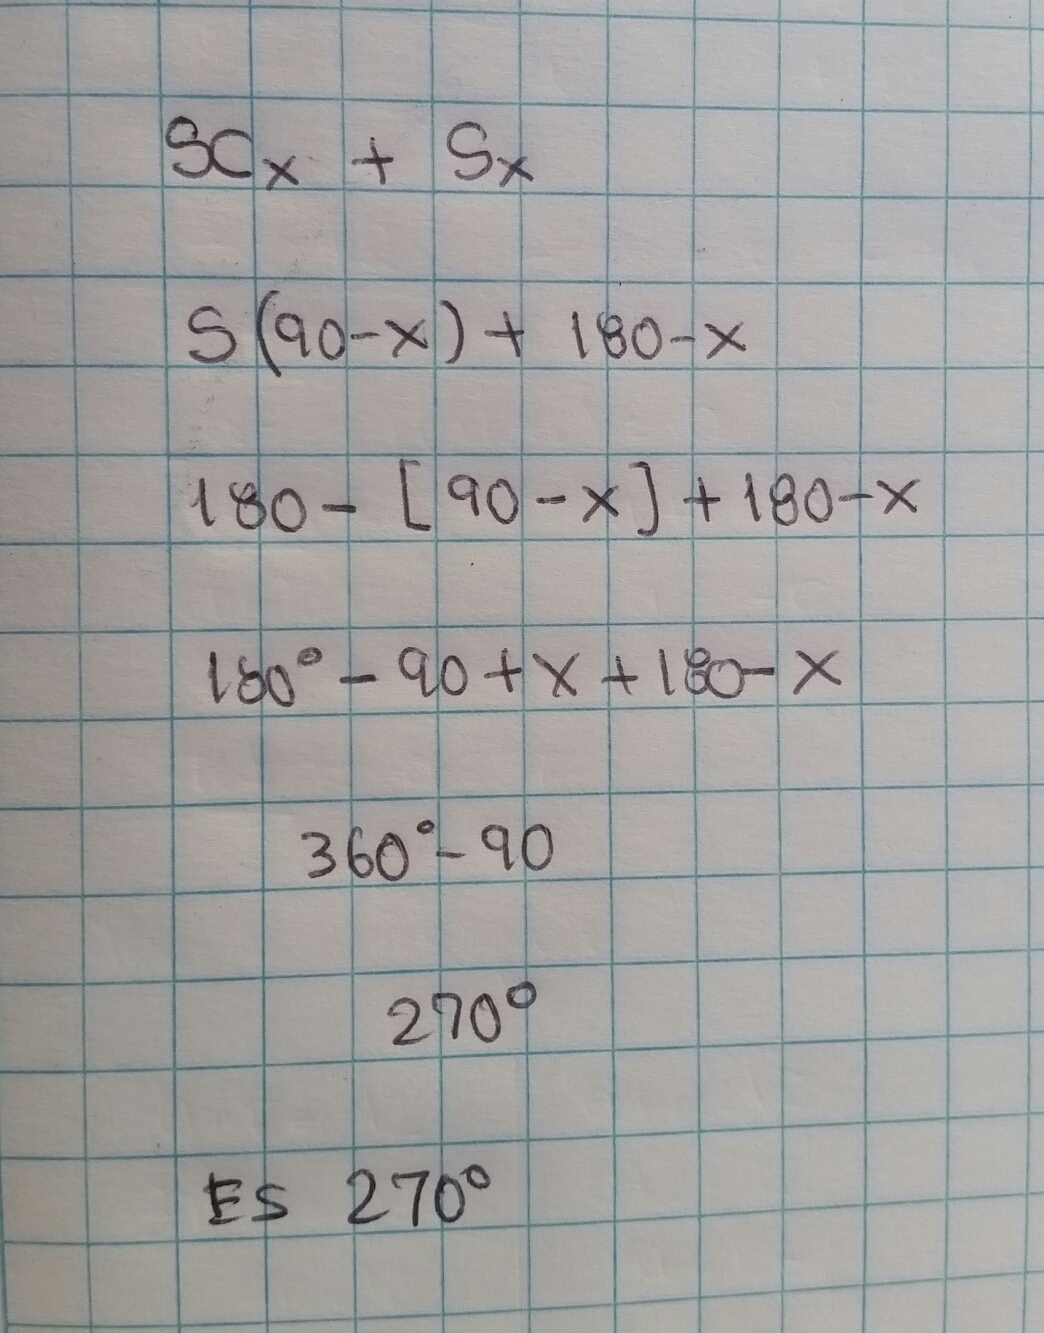 SCx + Sx
S(90-x) + 180-x
180 - [90-x] + 180-x
180° - 90 + x + 180 - x
360° - 90
270°
ES 270°